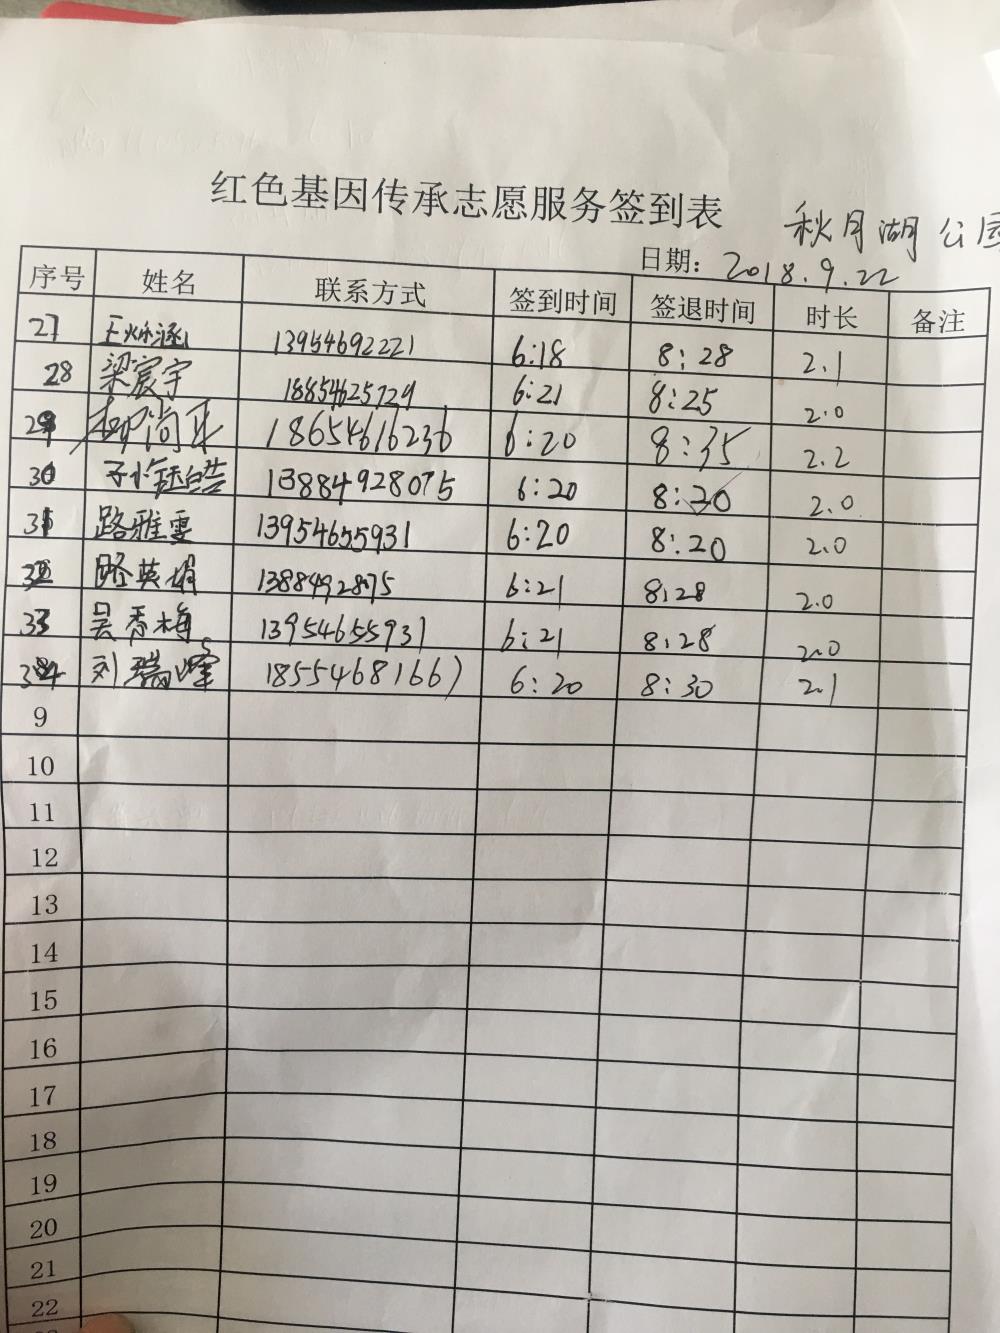 红色基因传承志愿服务签到表
秋月湖公园
日期：2018.9.22
序号 姓名 联系方式 签到时间 签退时间 时长 备注
27 13954692221 6:18 8:28 2.1
28 梁宸宇 18854625729 6:21 8:25 2.0
29 18654616236 6:20 8:35 2.2
30 13884928075 6:20 8:20 2.0
31 路雅雯 13954655931 6:20 8:20 2.0
32 路英娟 1388492875 6:21 8:28 2.0
33 吴秀梅 13954655931 6:21 8:28 2.0
34 刘瑞峰 6:20 8:30 2.1
9
10
11
12
13
14
15
16
17
18
19
20
21
22